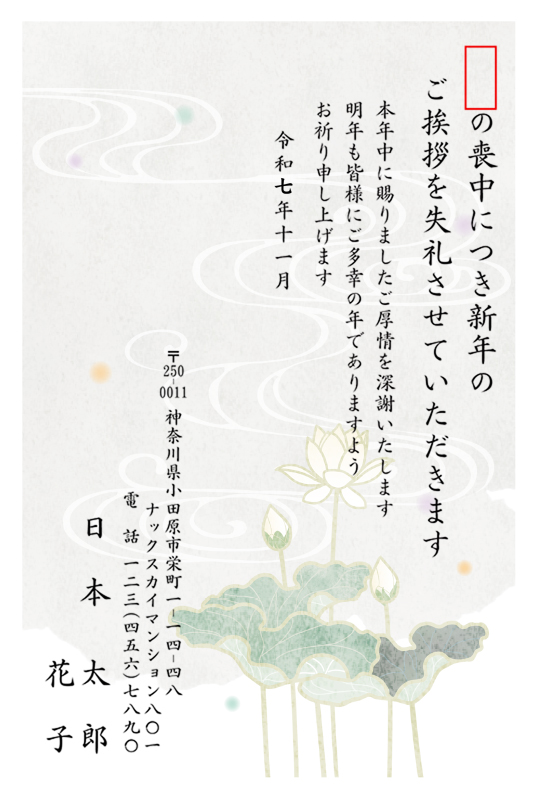 の喪中につき新年の
ご挨拶を失礼させていただきます
本年中に賜りましたご厚情を深謝いたします
明年も皆様にご多幸の年でありますよう
お祈り申し上げます
令和七年十一月
〒250-0011 神奈川県小田原市栄町一-一四-四八
ナックスカイマンション八〇一
電話 一二三(四五六)七八九〇
日本 太郎
花子